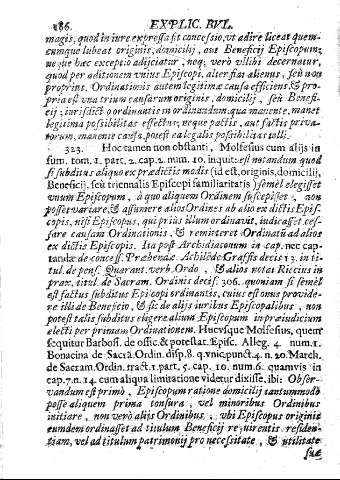 186. EXPLIC. BVL.
magis, quod in iure expressa sit concessio, vt adire liceat quem-
cumque lubeat originis, domicilij, aut Beneficij Episcopum;
neque hæc exceptio adijciatur, neq; verò vllibi decernatur,
quod per aditionem vnius Episcopi, alter fiat alienus, seù non
proprius. Ordinationis autem legitimæ causa efficiens, & pro-
pria est vna trium causarum originis, domicilij, seù Benefi-
cij; iurisdictio ordinantis in ordinandum. qua manente, manet
legitima possibilitas effectus; neque pactis, aut factis priua-
torum, manente causa, potest ea legalis possibilitas tolli.
323. Hoc tamen non obstanti, Molfesius cum alijs in
sum. tom. 1. part. 2. cap. 2. num. 10. inquit: est notandum quod
si subditus aliquo ex prædictis modis (id est, originis, domicilij,
Beneficij, seù triennalis Episcopi familiaritatis) semèl elegisset
vnum Episcopum, à quo aliquem Ordinem suscepisset, non
posset variare, & assumere alios Ordines ab alio ex dictis Epis-
copis, nisi Episcopus, qui priùs illum ordinauit, indicasset ces-
sare causam Ordinationis, & remitteret Ordinati ad alios
ex dictis Episcopis. Ita post Archidiaconum in cap. nec cap-
tandæ de concess. Præbendæ. Achilè de Graffis decis 13. in ti-
tul. de pens. Quarant. verb. Ordo, & alios notat Riccius in
prax. titul. de Sacram. Ordinis decis. 306. quoniam si semèl
est factus subditus Epicopi ordinantis, cuius est onus prouide-
re illi de Beneficio, & sic de alijs iuribus Episcopalibus, non
potest talis subditus eligere alium Episcopum in præiudicium
electi per primam Ordinationem. Hucvsque Molfesius, quem
sequitur Barbos. de offic. & potestat. Episc. Alleg. 4 num. 1.
Bonacina de Sacra. Ordin. disp. 8. q. vnic. punct. 4. n. 20. March.
de Sacram. Ordin. tract. 1. part. 5. cap. 10. num. 6. quamvis in
cap. 7. n. 14. cum aliqua limitatione videtur dixisse, ibi: Obser-
vandum est primò, Episcopum ratione domicilij tantummodò
posse aliquem prima tonsura, vel minoribus Ordinibus
initiare, non verò alijs Ordinibus; vbi Episcopus originis
eumdem ordinasset ad titulum Beneficij requirentis residen-
tiam, vel ad titulum patrimonij pro necessitate, & utilitate
suæ